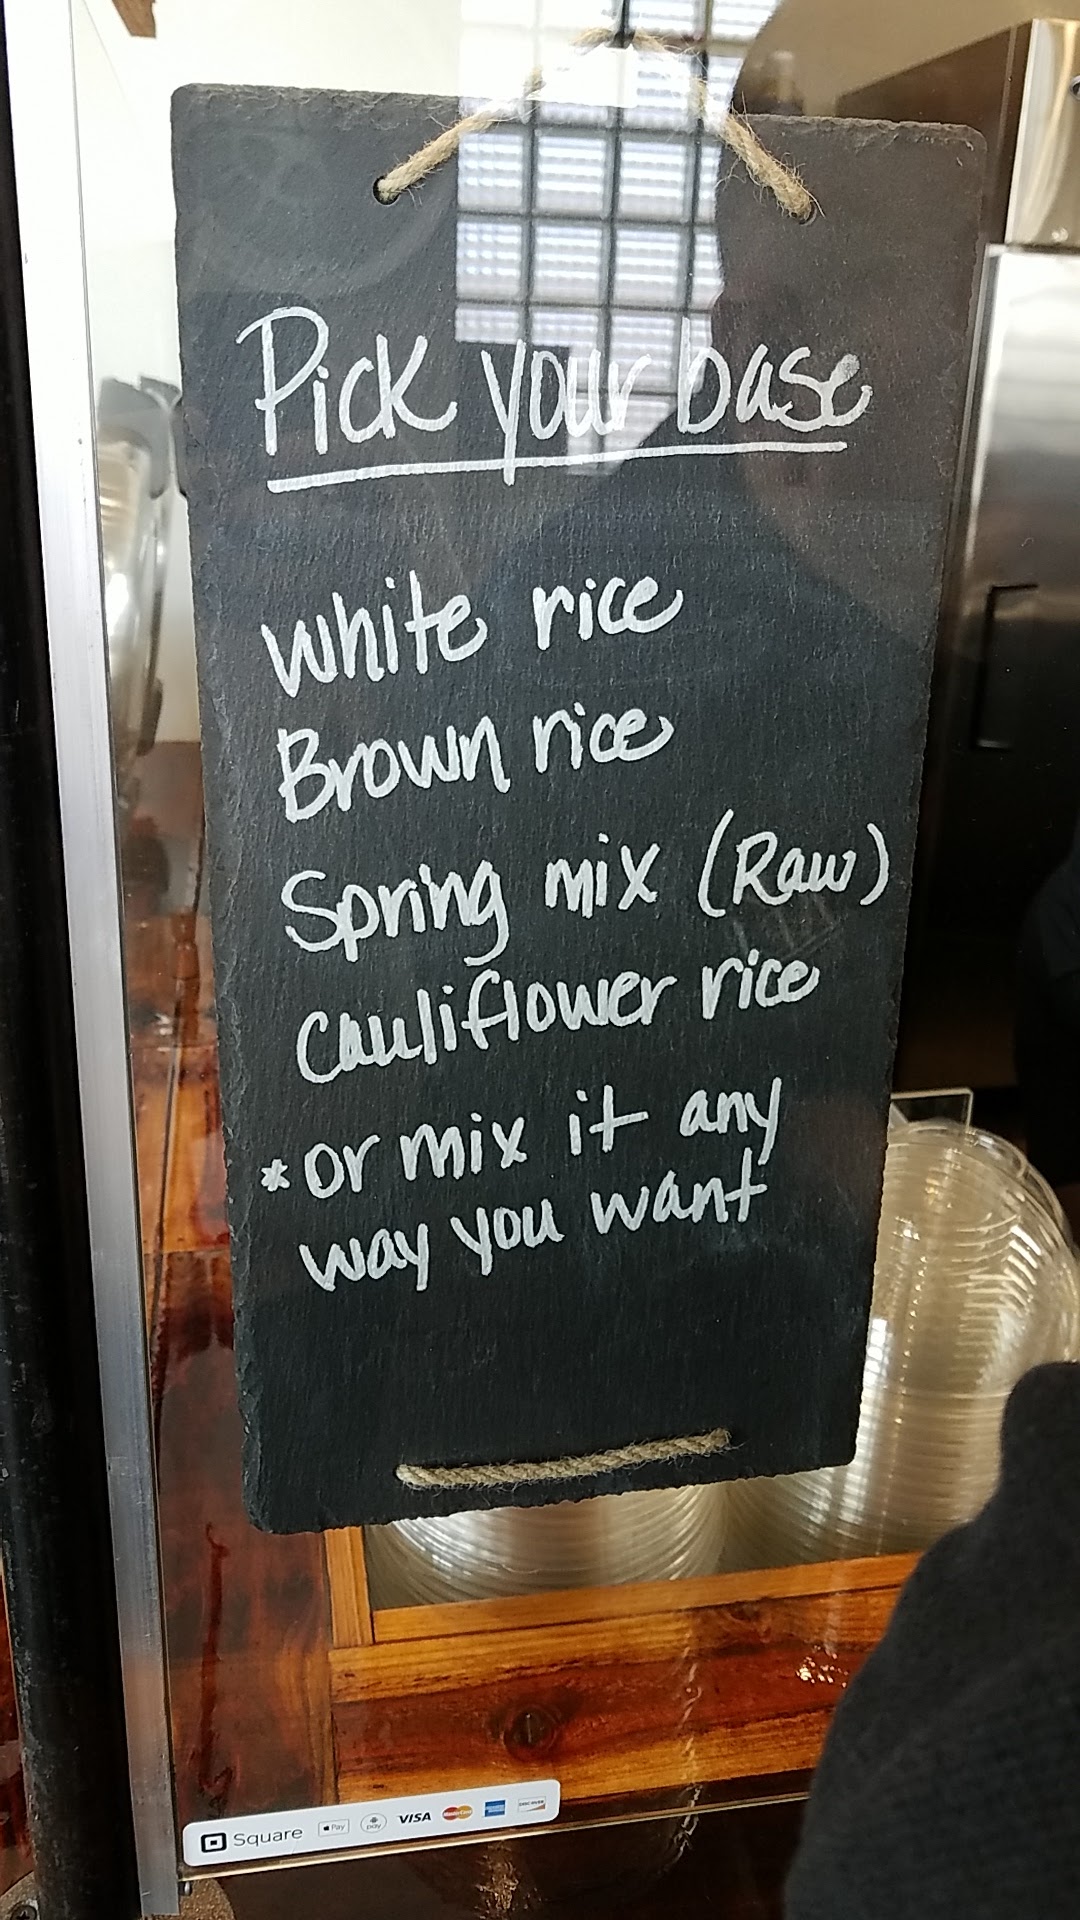 Pick your base
White rice
Brown rice
Spring mix (Raw)
Cauliflower rice
*or mix it any
way you want
Square Pay pay VISA MasterCard DISCOVER